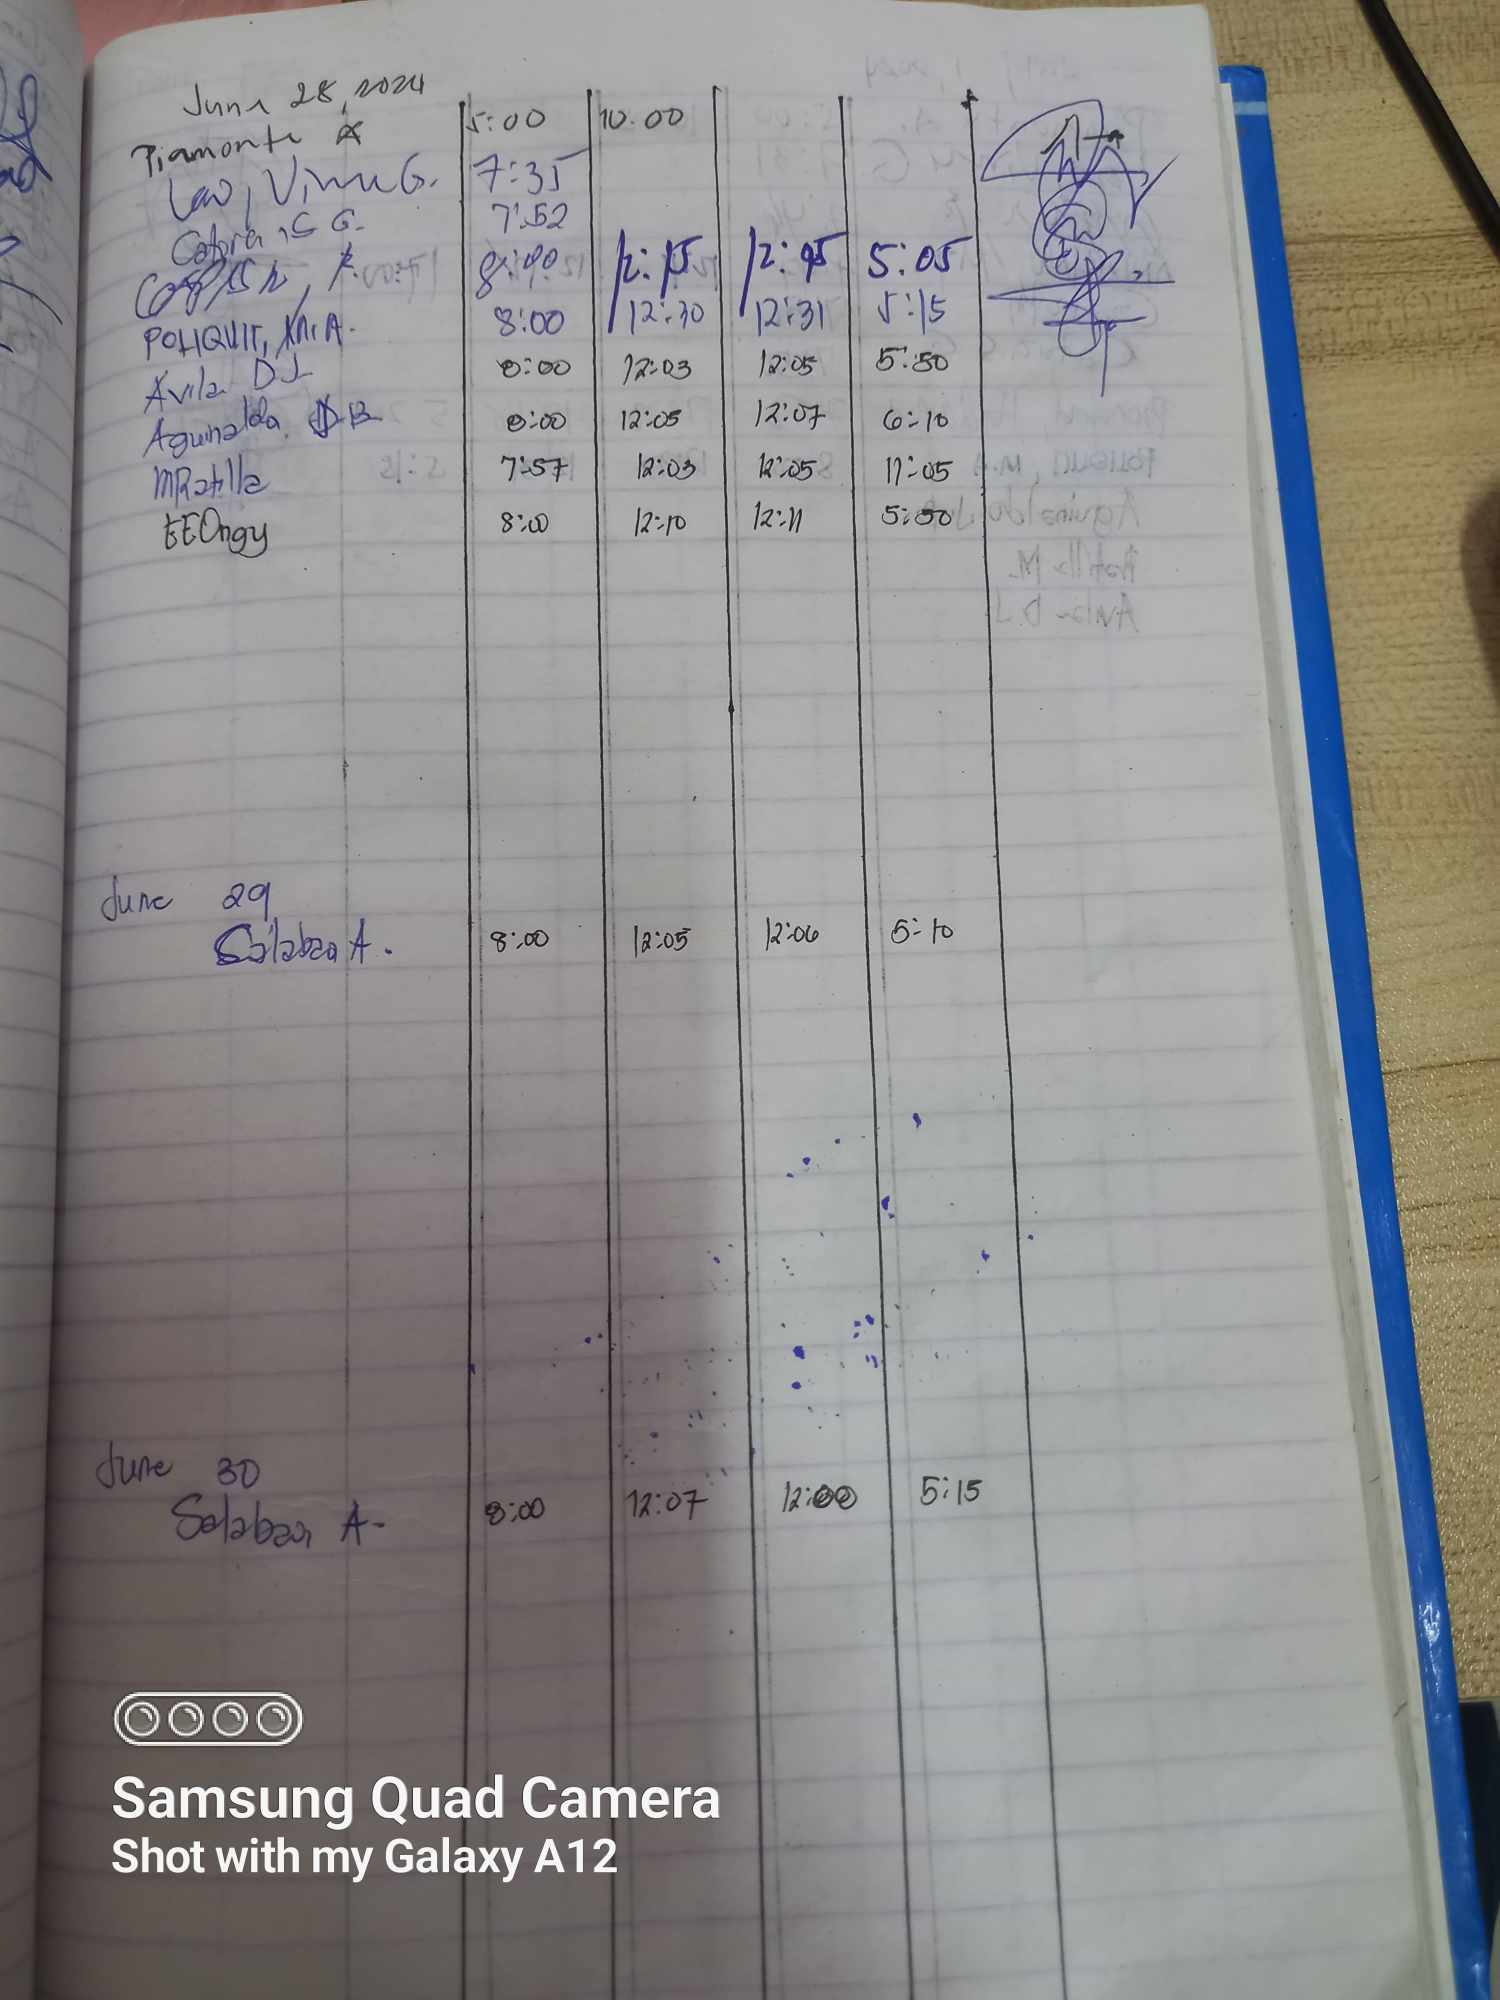 June 28, 2024
Piamonte A 5:00 10:00
Lao, G. 7:35
G. 7:52
8:00 12:15 12:15 5:05
POLIQUIT, M.A. 8:00 12:30 12:31 5:15
Avila DJ 8:00 12:03 12:05 5:30
Aguinaldo 8:00 12:05 12:07 6:10
MRatilla 7:57 12:03 12:05 17:05
EEOngy 8:00 12:10 12:11 5:30
June 29
Salabao A. 8:00 12:05 12:06 5:10
June 30
Salabao A- 8:00 12:07 5:15
Samsung Quad Camera
Shot with my Galaxy A12